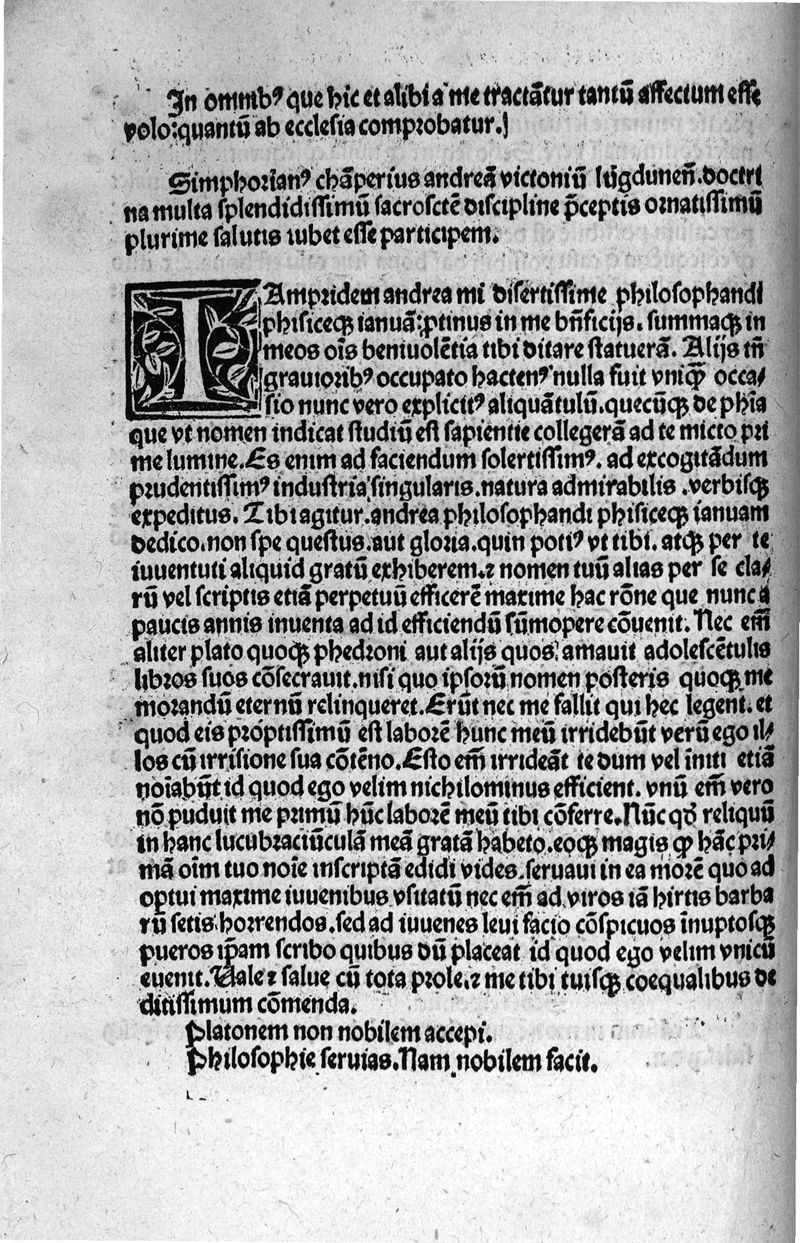 In omnibꝰ que hic et alibi a me tractãtur tantũ assectum esse
volo:quantũ ab ecclesia comprobatur.)
Simphorianꝰ chãperius andreã victoniũ lugdunen̄.doctri
na multa splendidissimũ sacrosctẽ discipline p̄ceptis ornatissimũ
plurime salutis iubet esse participem.
IAmpridem andrea mi disertissime philosophandi
phisiceqꝫ ianuã:ꝓtinus in me bn̄ficijs. summaqꝫ in
meos oı̄s beniuolẽtia tibi ditare statuerã. Alijs tn̄
grauioribꝰ occupato hactenꝰ nulla fuit vniqꝫ̃ occa/
sio nunc vero explicitꝰ aliquãtulũ.quecũqꝫ de phı̄a
que vt nomen indicat studiũ est sapientie collegerã ad te micto pri
me lumine.Es enim ad faciendum solertissimꝰ. ad excogitãdum
prudentissimꝰ industria singularis.natura admirabilis .verbisqꝫ
expeditus. Tibi agitur.andrea philosophandi phisiceqꝫ ianuam
dedico.non spe questus.aut gloria.quin potiꝰ vt tibi. atqꝫ per te
iuuentuti aliquid gratũ exhiberem.⁊ nomen tuũ alias per se cla/
rũ vel scriptis etiã perpetuũ efficerẽ maxime hac rõne que nunc a
paucis annis inuenta ad id efficiendũ sũmopere cõuenit. Nec em̃
aliter plato quoqꝫ phedroni aut alijs quos amauit adolescẽtulis
libros suos cõsecrauit.nisi quo ipsorũ nomen posteris quoqꝫ me
morandũ eternũ relinqueret.Erũt nec me fallit qui hec legent. et
quod eis prõptissimũ est laborẽ hunc meũ irridebũt verũ ego il/
los cũ irrisione sua cõtẽno.Esto em̃ irrideãt te dum vel ı̃niti etiã
noı̄abũt id quod ego velim nichilominus efficient. vnũ em̃ vero
nõ puduit me primũ hũc laborẽ meũ tibi cõferre.Nũc qđ reliquũ
in hanc lucubraciũculã meã gratã habeto.eoqꝫ magis qꝫ̃ hãc pri/
mã oı̄m tuo noı̄e inscriptã edidi vides.seruaui in ea morẽ quo ad
optui maxime iuuenibus vsitatũ nec em̃ ad viros iã hirtis barba
rũ setis horrendos.sed ad iuuenes leui facio cõspicuos ı̃nuptosqꝫ
pueros ip̄am scribo quibus dũ placeat id quod ego velim vnicũ
euenit.Vale ⁊ salue cũ tota prole.⁊ me tibi tuisqꝫ coequalibus de
ditissimum cõmenda.
Platonem non nobilem accepi.
Philosophie seruias.Nam nobilem facit.